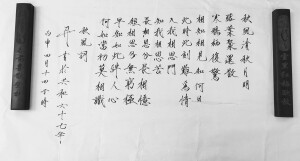 秋風清秋月明
落葉聚還散
寒鴉棲復驚
相知相見知何日
此時此刻難為情
入我相思門
知我相思苦
長相思兮長相憶
短相思兮無窮極
早知如此絆人心
何如當初莫相識
秋風詞
書於共和六十七年
丙申四月十四吉時